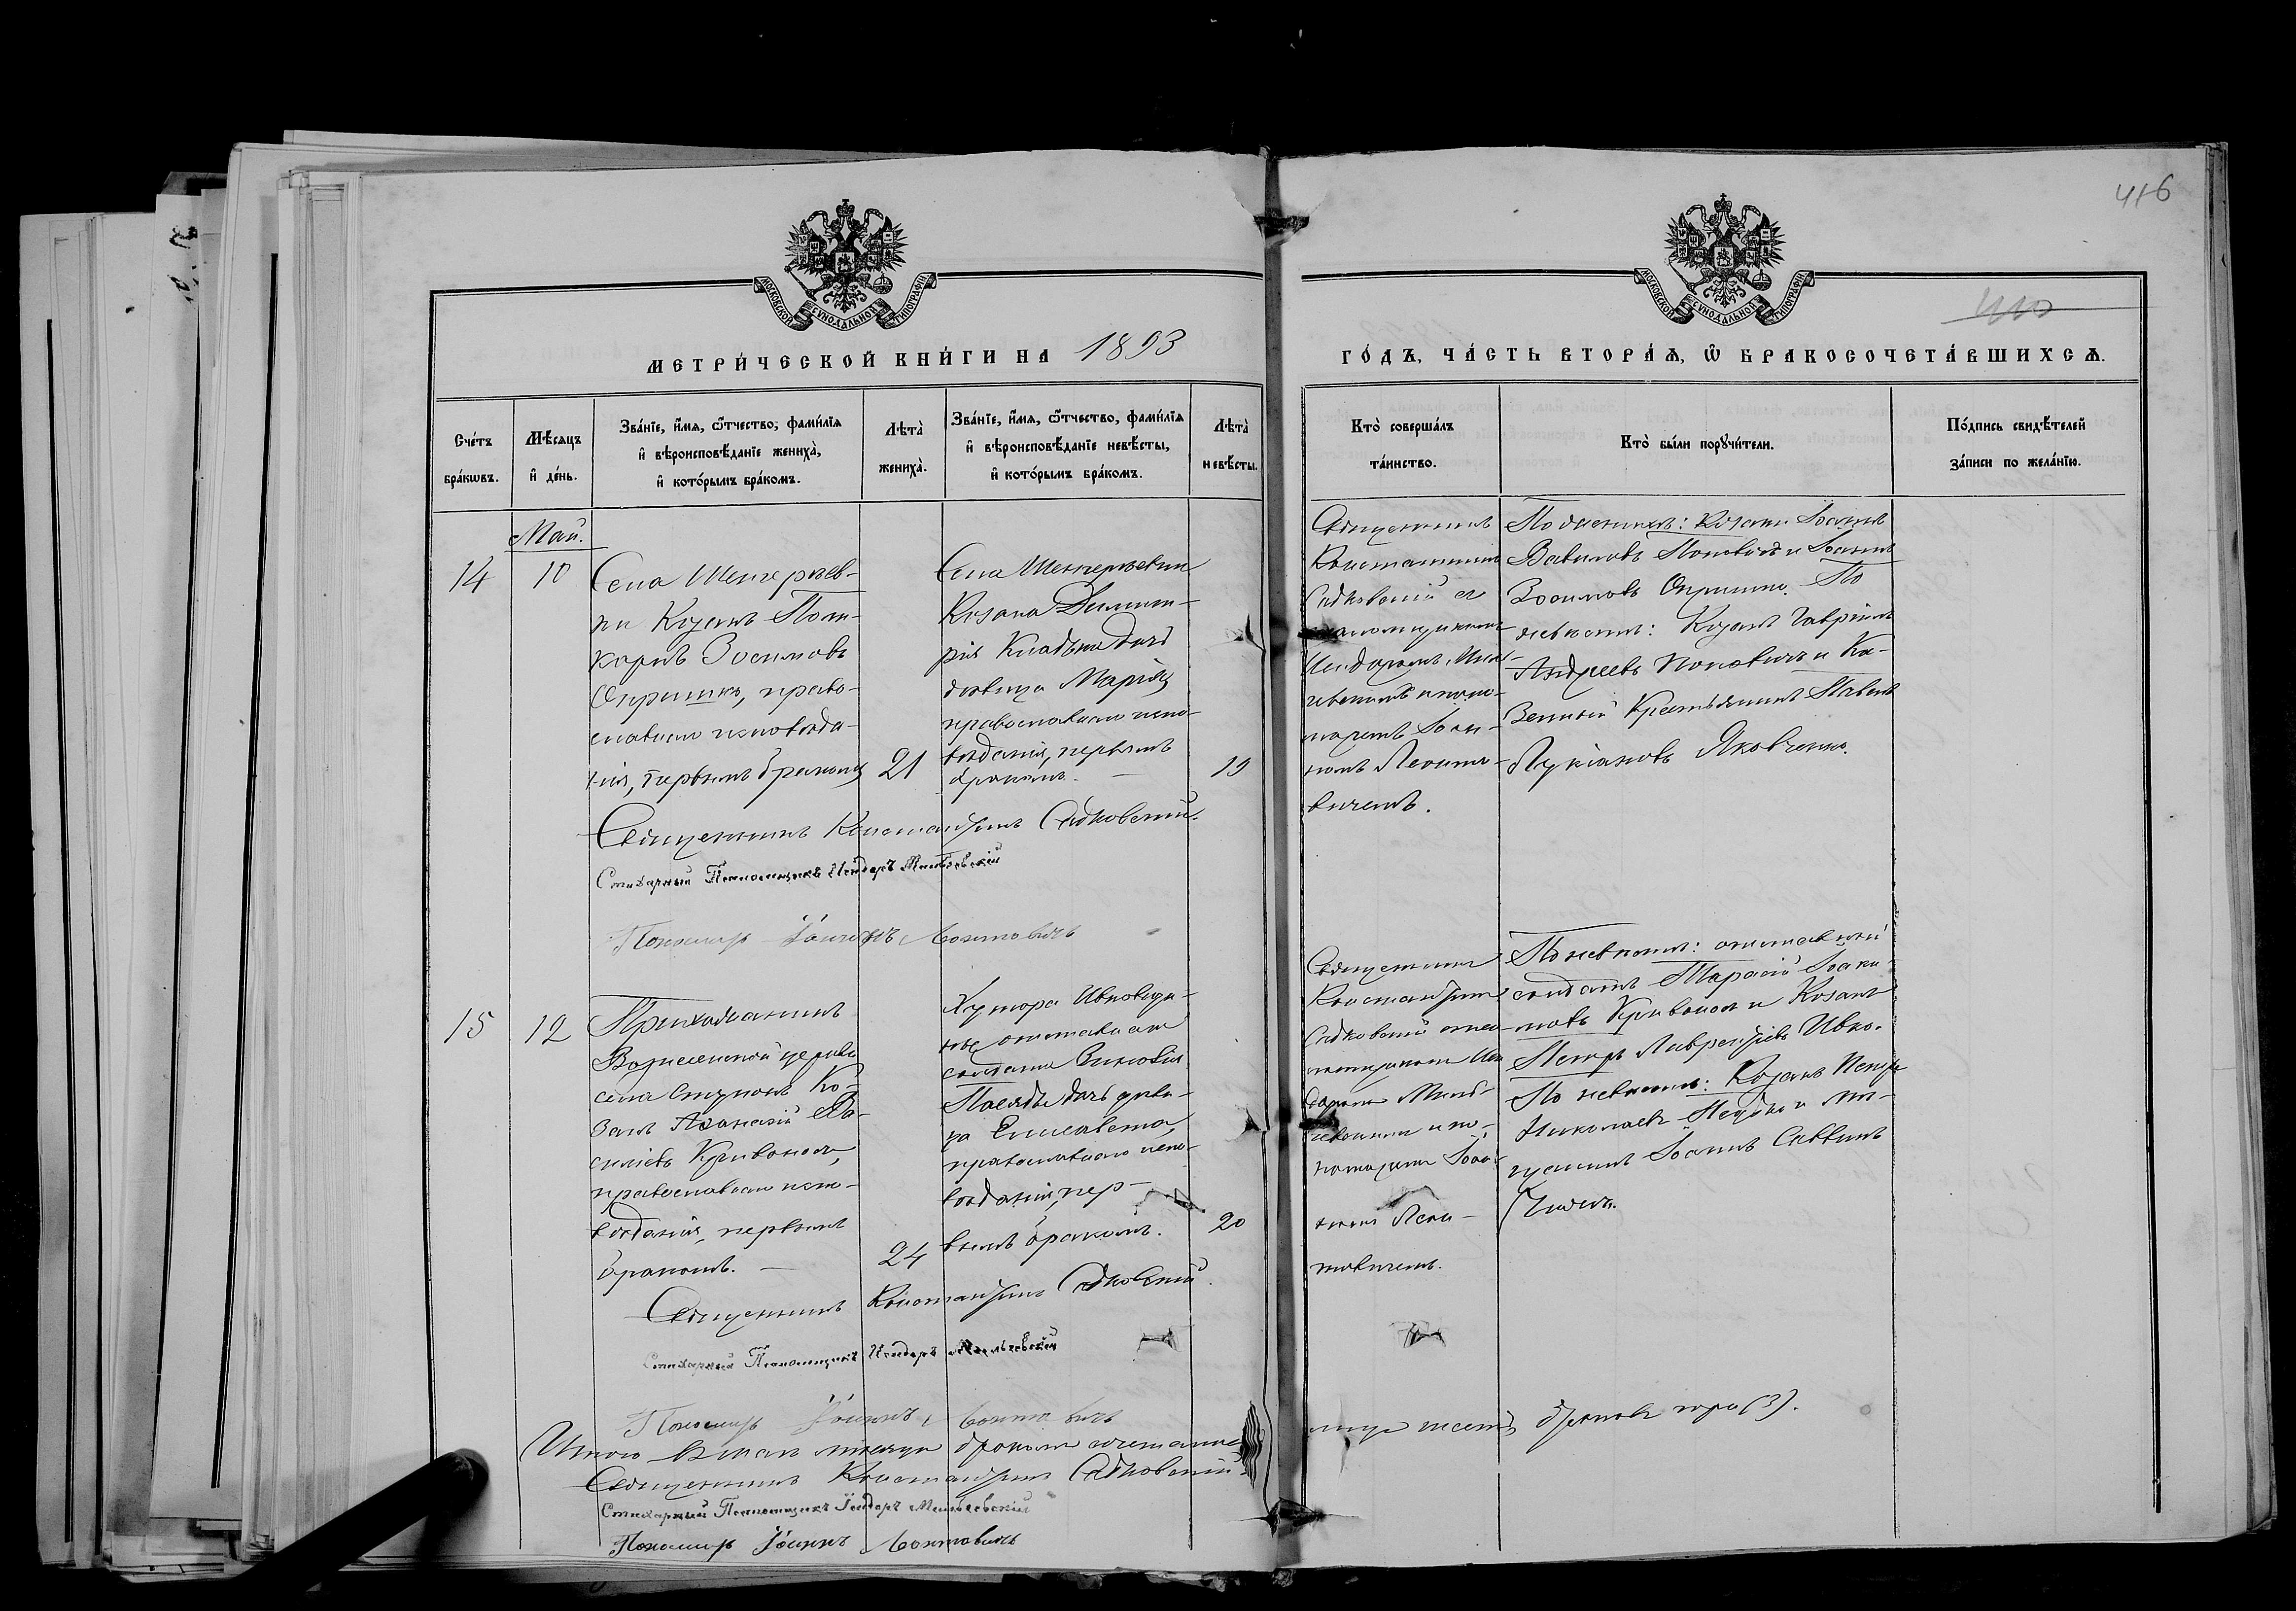 416
МОСКОВСКОЙ СѴНОДАЛЬНОЙ ТИПОГРАФІИ
МОСКОВСКОЙ СѴНОДАЛЬНОЙ ТИПОГРАФІИ
МЕТРИ́ЧЕСКОЙ КНИ́ГИ НА 1893
ГО́ДЪ, ЧА́СТЬ ВТОРА́Ѧ, Ѿ БРАКОСОЧЕТА́ВШИХСѦ.
Сче́тъ бра́кѡвъ.
Мѣ́сяцъ и҆ де́нь.
Зва́нїе, и҆́мѧ, ѻ҆́тчество, фами́лїѧ
и҆ вѣроисповѣ́данїе жениха̀,
и҆ кото́рымъ бра́комъ.
Лѣта̀ жениха̀.
Зва́нїе, и҆́мѧ, ѻ҆́тчество, фами́лїѧ
и҆ вѣроисповѣ́данїе невѣ́сты,
и҆ кото́рымъ бра́комъ.
Лѣта̀ невѣ́сты.
Кто̀ соверша́лъ
та́инство.
Кто̀ бы́ли порꙋчи́тели.
По́дпись свидѣ́телей
за́писи по жела́нїю.
Май.
14
10
Села Шенгерѣев-
ки Козакъ Поли-
карпъ Зосимовъ
Опришко, право-
славнаго исповѣда-
нія, первымъ бракомъ
21
Села Шенгерѣевки
Козака Димит-
рія дочь
дѣвица Марія,
православнаго испо-
вѣданія, первымъ
бракомъ.
19
Священникъ
Константинъ
Садковскій съ
псаломщикомъ
Исидоромъ
и поно-
маремъ Іоан-
номъ Леонто-
вичемъ.
По женихѣ: Козаки Іоаннъ
Вавиловъ Поповичъ и Іоаннъ
Зосимовъ Опришко. По
невѣстѣ: Козакъ Гавріилъ
Андреевъ Поповичъ и Ка-
зенный Крестьянинъ Павелъ
Лукіановъ Яковченко.
Священникъ Константинъ Садковскій.
Стихарный Псаломщикъ Исидоръ
Пономарь Іоаннъ Леонтовичъ
15
12
Прихожанинъ
Вознесенской церкви
села Ко-
закъ Аѳанасій Ва-
силіевъ Кривоносъ,
православнаго испо-
вѣданія, первымъ
бракомъ.
24
Хутора
отставнаго
солдата Зиновія
дочь дѣви-
ца Елисавета,
православнаго испо-
вѣданія, пер-
вымъ бракомъ.
20
Священникъ
Константинъ
Садковскій съ псал-
омщикомъ Иси-
доромъ
и по-
номаремъ Іоан-
номъ Леон-
товичемъ.
По женихѣ: отставный
солдатъ Тарасій Іоаки-
мовъ Кривоносъ и Козакъ
Петръ Лаврентіевъ Ивко.
По невѣстѣ: Козакъ Петръ
Николаевъ и мѣ-
щанинъ Іоаннъ Саввинъ
Священникъ Константинъ Садковскій.
Стихарный Псаломщикъ Исидоръ
Пономарь Іоаннъ Леонтовичъ
Итого въ маѣ мѣсяцѣ бракомъ сочетанныхъ
бракъ (3).
Священникъ Константинъ Садковскій.
Стихарный Псаломщикъ Исидоръ
Пономарь Іоаннъ Леонтовичъ